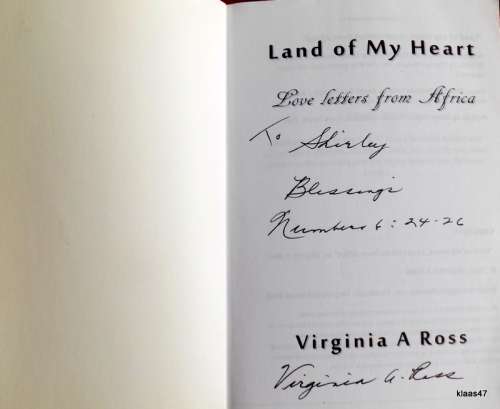 Land of My Heart
Love letters from Africa
To Shirley
Blessings
Numbers 6:24-26
Virginia A Ross
Virginia A. Ross
klaas47